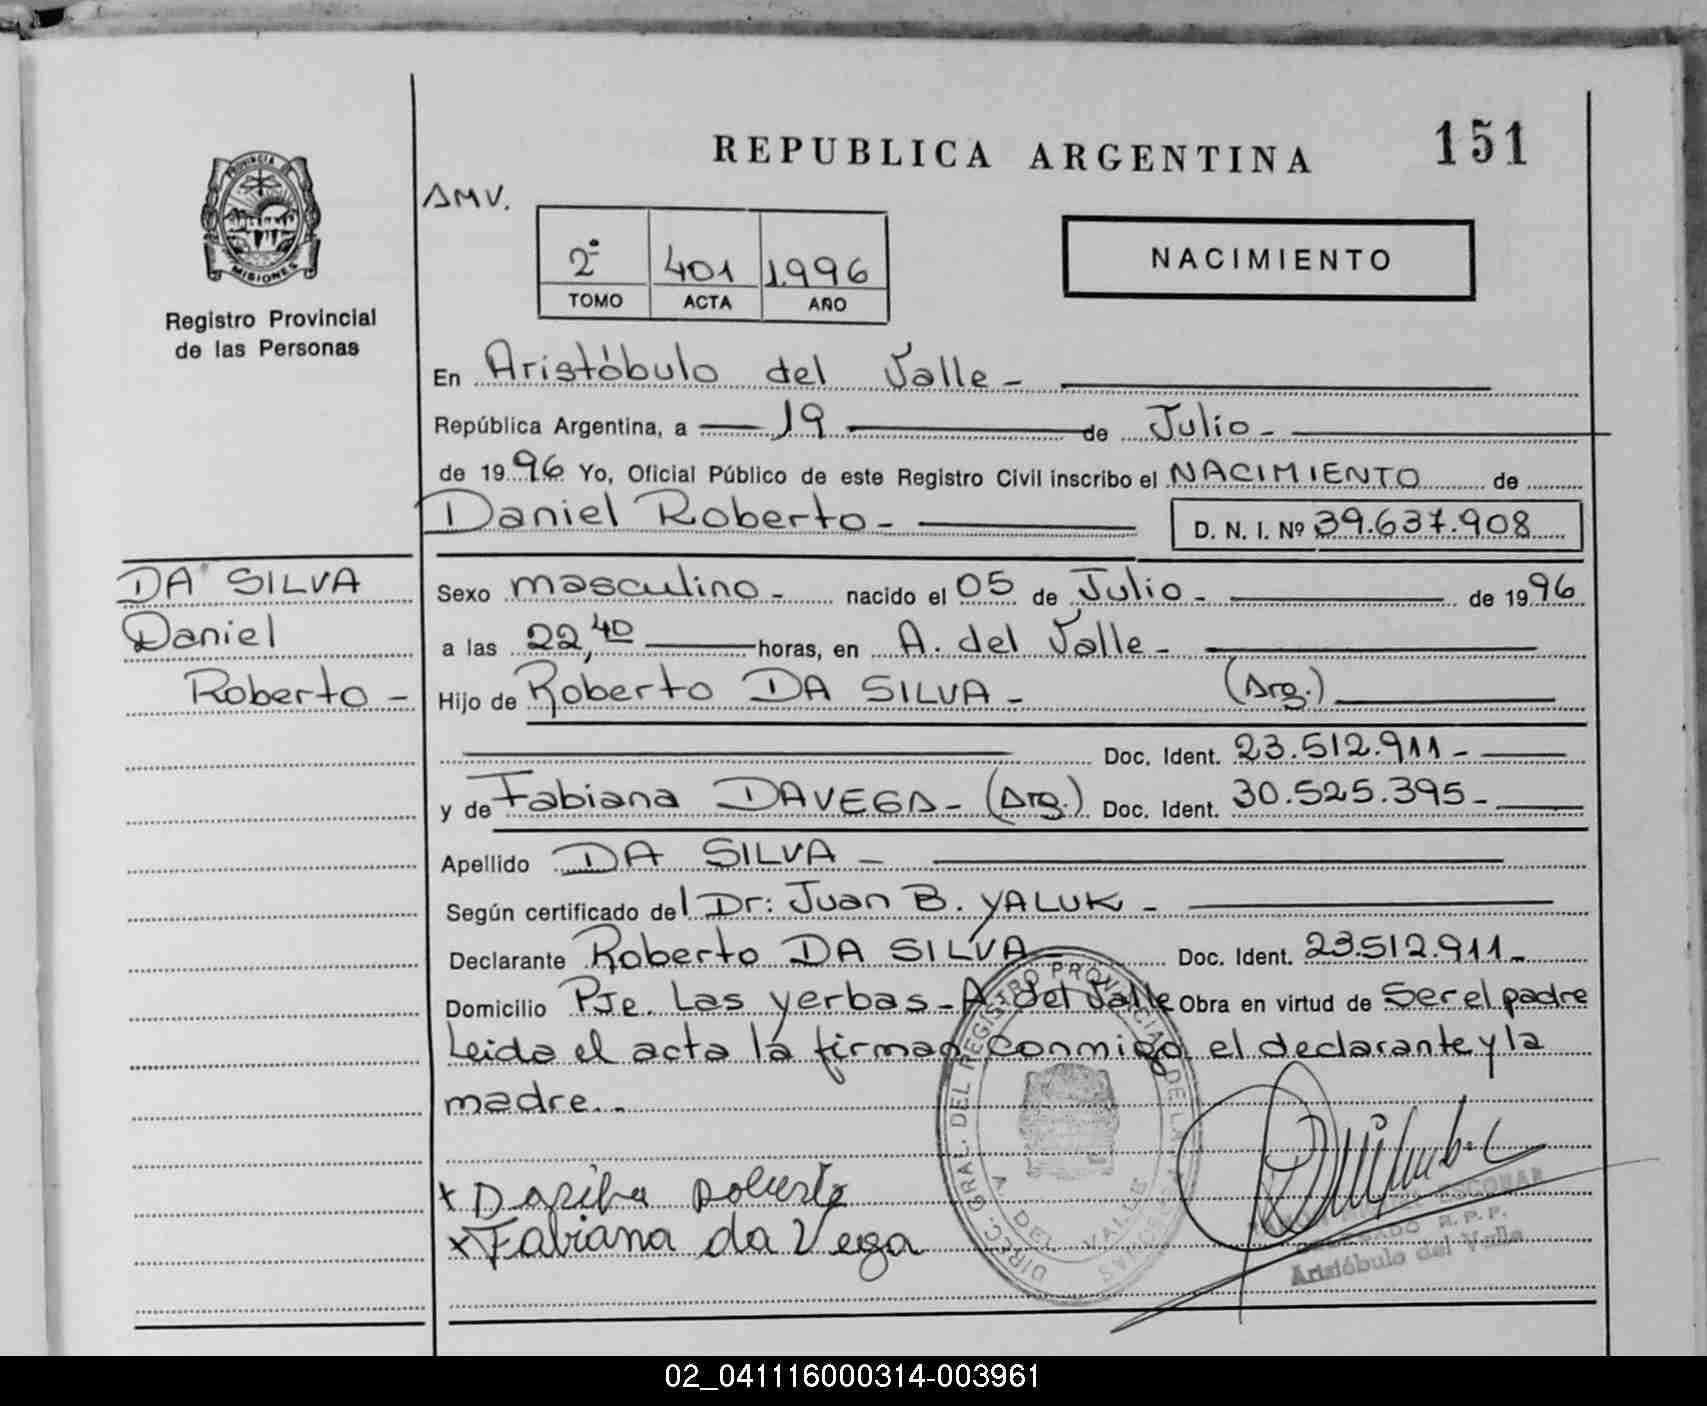 REPUBLICA ARGENTINA 151
PROVINCIA DE
MISIONES
Registro Provincial
de las Personas
AMV.
2º 401 1996
TOMO ACTA AÑO
NACIMIENTO
En Aristóbulo del Valle -
República Argentina, a 19 de Julio -
de 1996 Yo, Oficial Público de este Registro Civil inscribo el NACIMIENTO de
Daniel Roberto - D. N. I. Nº 39.637.908
DA SILVA
Daniel
Roberto -
Sexo masculino - nacido el 05 de Julio - de 1996
a las 22,40 horas, en A. del Valle -
Hijo de Roberto DA SILVA - (Arg.)
Doc. Ident. 23.512.911 -
y de Fabiana DAVEGA - (Arg.) Doc. Ident. 30.525.395 -
Apellido DA SILVA -
Según certificado del Dr: Juan B. YALUK -
Declarante Roberto DA SILVA - Doc. Ident. 23.512.911 -
Domicilio Pje. Las yerbas - A. del Valle Obra en virtud de Ser el padre
Leida el acta la firman conmigo el declarante y la
madre. -
DIREC. GRAL. DEL REGISTRO PROVINCIAL DE LAS PERSONAS
A. DEL VALLE
x Dasilva Roberto
x Fabiana da Vega
ESCOBAR
R.P.P.
Aristóbulo del Valle
02_041116000314-003961